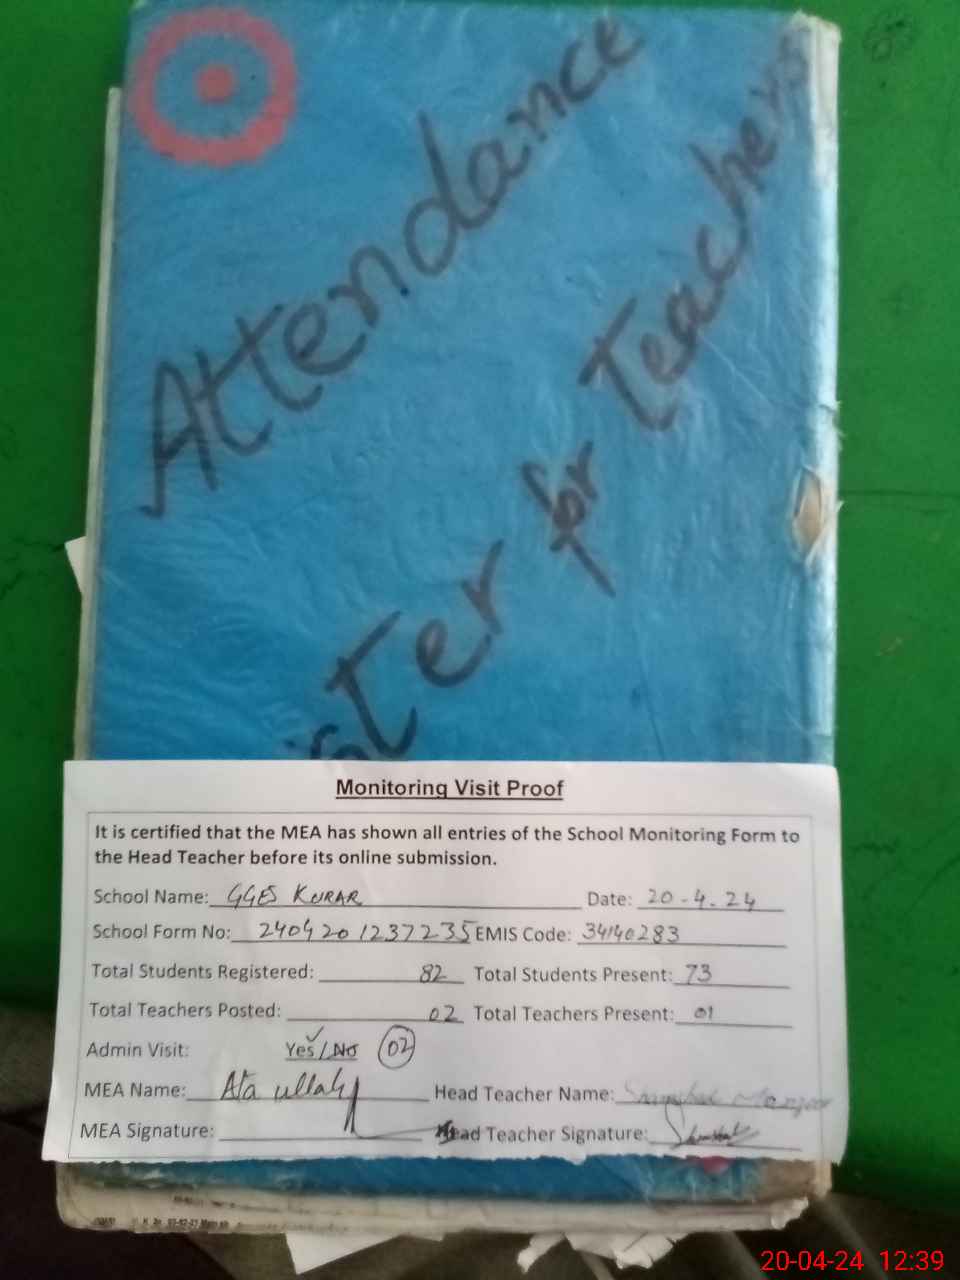 Attendance
ister for Teachers
Monitoring Visit Proof
It is certified that the MEA has shown all entries of the School Monitoring Form to
the Head Teacher before its online submission.
School Name: GGES KURAR Date: 20-4-24
School Form No: 2404201237235 EMIS Code: 34140283
Total Students Registered: 82 Total Students Present: 73
Total Teachers Posted: 02 Total Teachers Present: 01
Admin Visit: Yes/No 02
MEA Name: Ata ullah Head Teacher Name: Manzoor
MEA Signature: Head Teacher Signature:
20-04-24 12:39